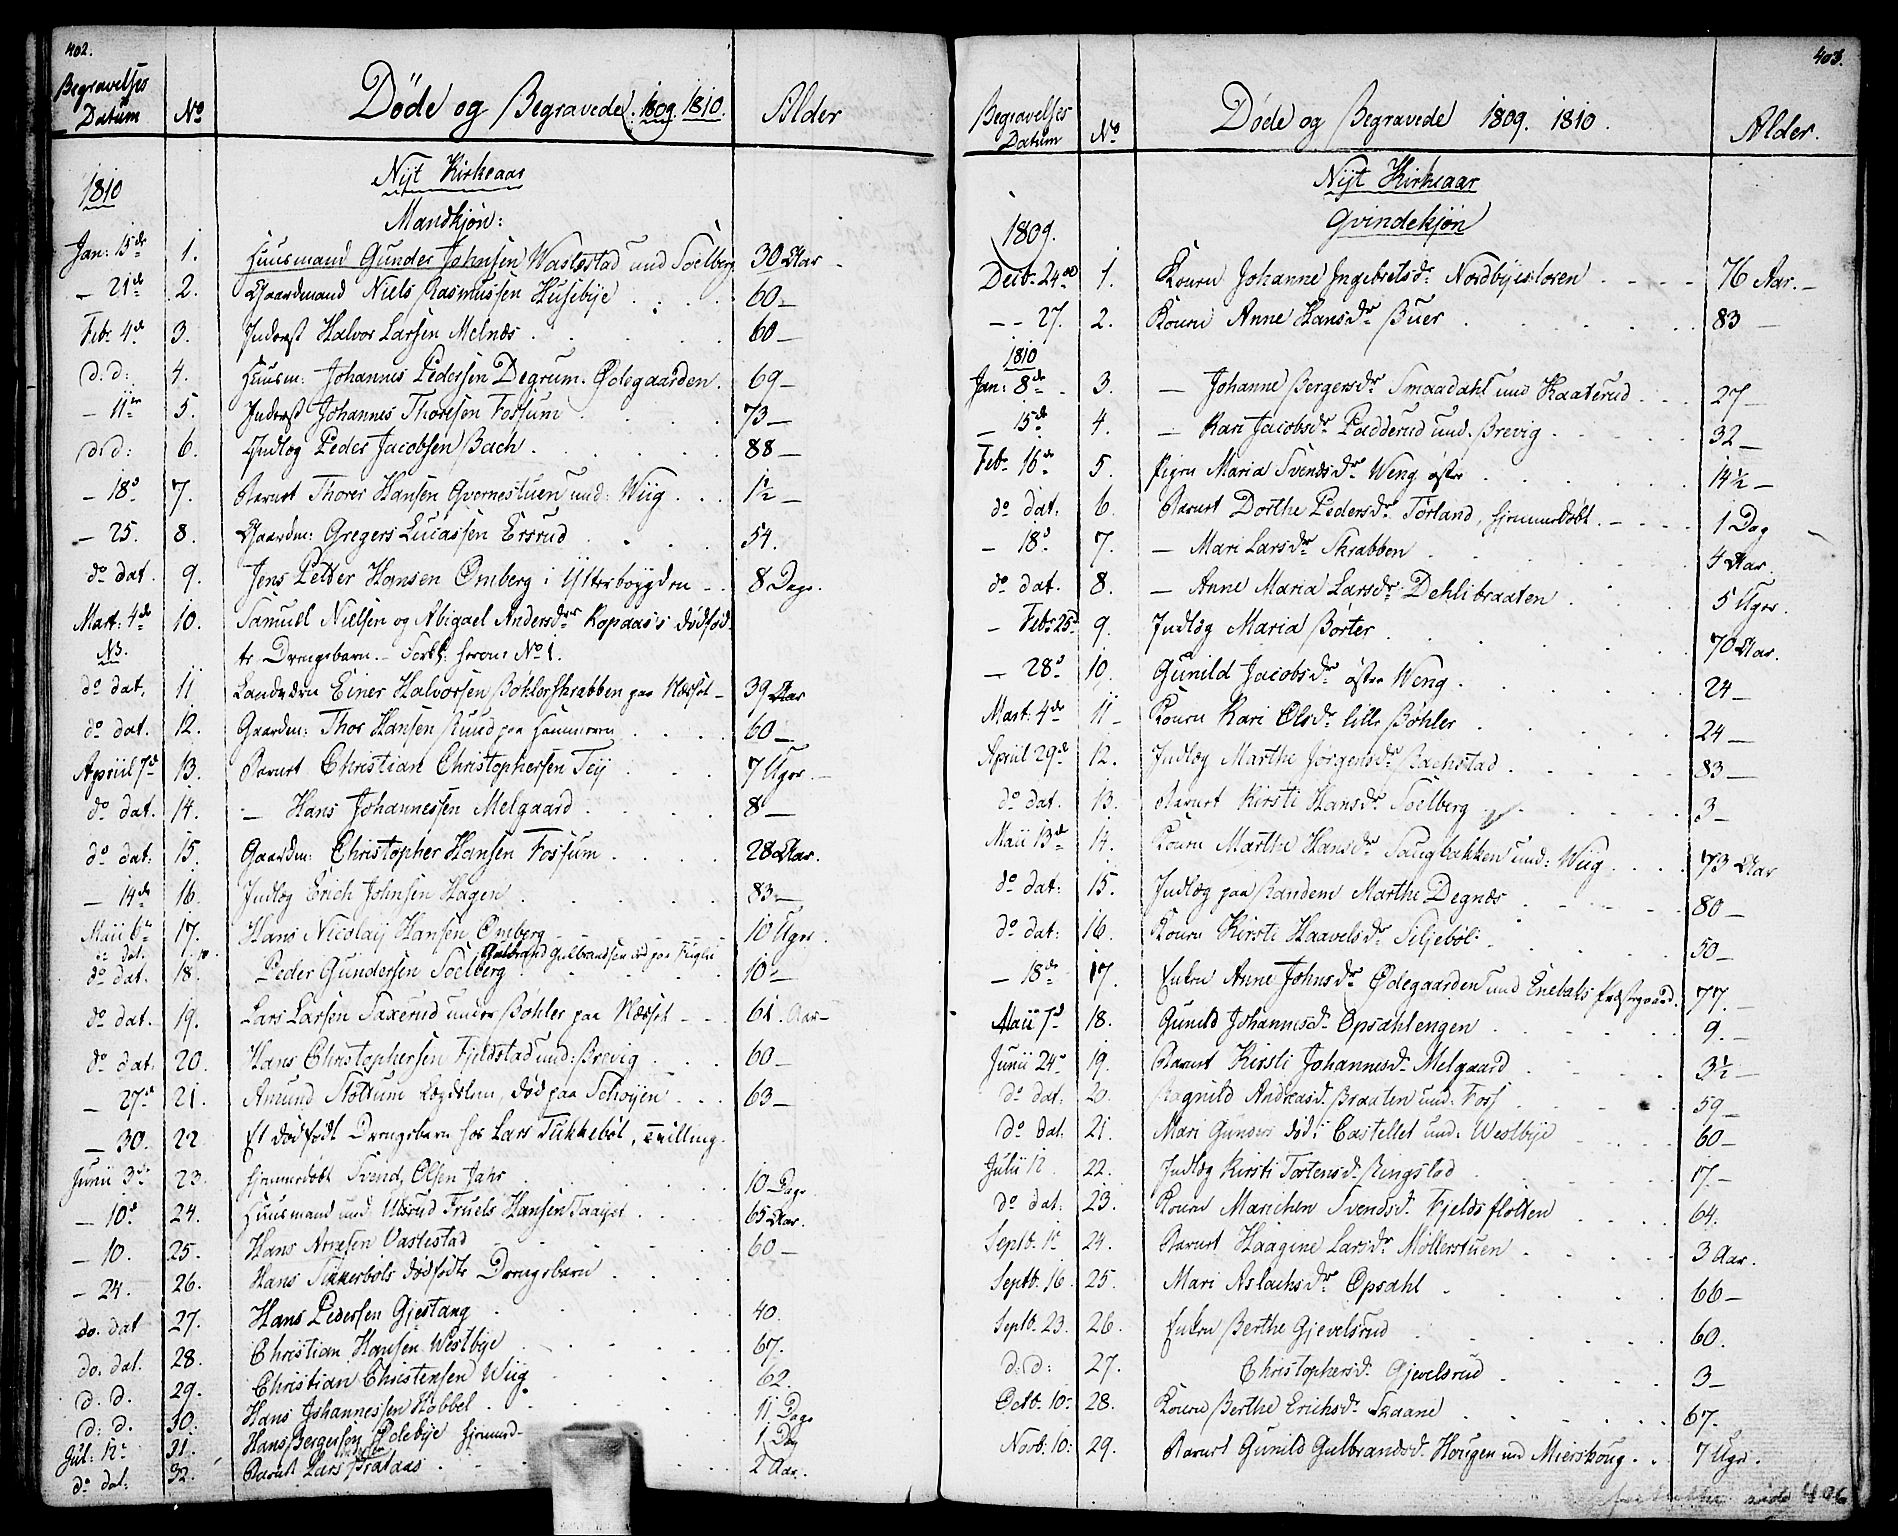 402.
Begravelses Datum No Døde og Begravede 1809. 1810. Alder
1810 Nyt Kirkeaar
Mandkjøn:
Jan: 15de 1. Huusmand Gunder Johnsen Wastestad und Soelberg 30 Aar
— 21de 2. Gaardmand Niels Rasmussen Husebye 60 —
Febr 4de 3. Inderst Halvor Larsen Melnæs 60 —
d. d: 4. Huusm: Johannes Pedersen Degrum. Ødegaarden. 69 —
— 11te 5. Inderst Johannes Thoresen Fossum 73 —
d: d: 6. Indlog Peder Jacobsen Bach 88 —
— 18d 7. Barnet Thorer Hansen Qvernestuen und: Wiig 1½ —
— 25. 8. Gaardm: Gregers Lucassen Ersrud 54.
do dat. 9. Jens Petter Hansen Omberg i Ytterbøygden 8 Dage.
Mart: 4de 10. Samuel Nielsen og Abigael Andersdr Kopaas's dødfød-
NB. te Drengebarn. — No 1.
do dat. 11 Einer Halvorsen Bøhlerskrabben paa Næsset — 39 Aar
do dat. 12. Gaardm: Thor Hansen Ruud paa Hammeren 60 —
Apriil 7d 13. Barnet Christian Christophersen Teij 7 Uger. —
do dat. 14. — Hans Johannessen Melgaard 8 —
do dat: 15. Gaardm: Christopher Hansen Fossum 28 Aar.
— 14de 16. Indlog Erich Johnsen Hagen 83 —
Maii 6te 17. Hans Nicolaij Hansen Omberg 10 Uger.
do dat. Gulbrand Gulbrandsen død paa Fuglie
do dat. 18. Peder Gundersen Soelberg 10 —
do dat. 19. Lars Larsen Saxerud under Bøhler paa Næsset — 61. Aar —
do dat. 20. Hans Christophersen Fieldstad und: Brevig 60 —
— 27d 21. Amund Slottum Lægdslem, død paa Schøyen 63 —
— 30. 22 Et dødfødt Drengebarn hos Lars Tukkebøl, Tvilling.
Junii 3de 23. hjemmedøbt Svend Olsen Jahr 10 Dage
— 10d 24. Huusmand und Ullsrud Truels Hansen 65 Aar.
— 10. 25. Hans Vastestad 60 —
— 24. 26. Hans Tukkerbøls dødfødte Drengebarn
do. dat 27. Hans Pedersen Gjestang 40.
do. dat. 28. Christian Hansen Westbye 67.
d. d. 29. Christian Christensen Wiig 62.
d: d. 30. Hans Johannessen Hobbel 11 Dage
Jul: 12te 31. Hans Bergersen Ødebye hjemmed- 1 Dag
do dat: 32. Barnet Lars Brataas 2 Aar.
403.
Begravelses Datum No Døde og Begravede 1809. 1810. Alder.
Nyt Kirkeaar
Qvindekjøn
1809.
Decb. 24de 1. Konen Johanne Ingebretsdr Nordbyesloren 76 Aar. —
— — 27. 2. Konen Anne Hansdr Buer 83 —
1810
Jan: 8de 3. — Johanne Bergersdr Smaadahl und Kaaterud 27
— 15de 4. — Kari Jacobsdr Padderud und. Brevig 32 —
Feb. 16de 5. Pigen Maria Svendsdr Weng østre 14½ —
do dat. 6. Barnet Dorthe Pedersdr Tørland, hjemmedøbt. 1 Dag
— 18d 7. — Mari Larsdr Skrabben 4 Aar.
do dat. 8. — Anne Maria Larsdr Dehlibraaten 5 Uger.
— Febr 25d 9. Indlog Maria Børter 70 Aar.
— 28d 10. Gunild Jacobsdr østre Weng 24 —
Mart. 4de 11 — Konen Kari Olsdr lille Bøhler 24 —
April 29d 12. Indlog Marthe Jørgensdr Bachstad 83 —
do dat. 13. Barnet Kirsti Hansdr Soelberg 3 —
Maii 13de 14. Konen Marthe Hansdr Saugbakken und: Wiig 73 Aar
do dat: 15. Indlog paa Randem Marthe Degnæs 80 —
do dat: 16. Konen Kirsti Haavelsdr Siljebøl 50 —
— 18de 17. Enken Anne Johnsdr Ødegaarden und Enebaks Præstegaard. 77. —
Maii 7d 18. Gunild Johannesdr Opsahlengen 9. —
Junii 24d 19. Barnet Kirsti Johannesdr Melgaard 3½ —
do dat: 20. Ragnild Andreasdr Braaten und: Foss 59 —
do dat. 21. Mari Gunders død i Castellet und: Westbye 60 —
Julii 12 22. Indlog Kirsti Tostensdr Ringstad 17. —
do dat: 23. Konen Marichen Svendsdr Fjelds flotten 64.
Septb. 1d 24. Barnet Haagine Larsdr Møllerstuen 3 Aar.
Septb. 16. 25. Mari Aslachsdr Opsahl 66 —
Septb. 23. 26. Enken Berthe Gjevelsrud 60.
d: d: 27. Christophersdr Gjevelsrud 3 —
Octb. 10d 28. Konen Berthe Erichsdr Skaane 67. —
Novb. 10: 29. Barnet Gunild Gulbrandsdr Hougen und Mierskoug 7 Uger.
fortsættes side 406